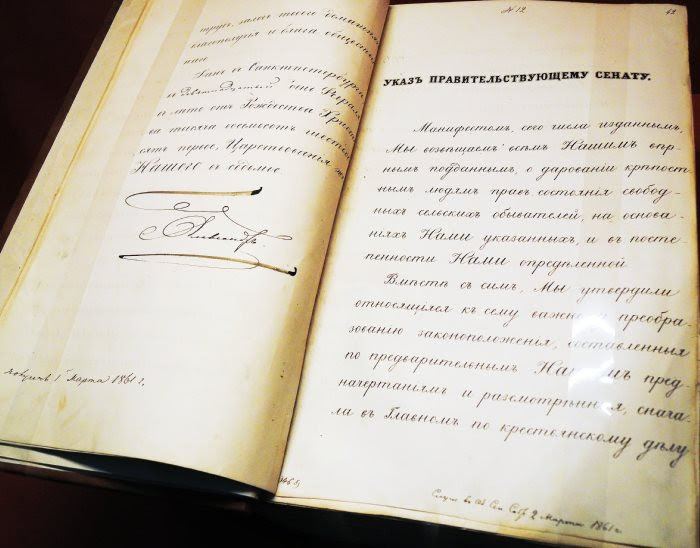 трудъ, залогъ твоего домашняго
благополучія и блага обществен
наго
Данъ въ Санктпетербургѣ
въ девятнадцатый день Февраля
въ лѣто отъ Рождества Христо
ва тысяча восемьсотъ шестьде
сятъ первое, Царствованія же
Нашего въ седьмое.
Александръ
получено 1 Марта 1861 г.
№ 12
62
УКАЗЪ ПРАВИТЕЛЬСТВУЮЩЕМУ СЕНАТУ.
Манифестомъ, сего числа изданнымъ,
Мы возвѣщаемъ всѣмъ Нашимъ вѣр-
нымъ подданнымъ, о дарованіи крѣпост-
нымъ людямъ правъ состоянія свобод-
ныхъ сельскихъ обывателей, на основа-
ніяхъ Нами указанныхъ, и въ посте-
пенности Нами опредѣленной
Вмѣстѣ съ симъ, Мы утвердили
относящіяся къ сему важному преобра-
зованію законоположенія, составленныя
по предварительнымъ Нашимъ пред-
начертаніямъ и разсмотрѣнныя, снача-
ла въ Главномъ по крестьянскому дѣлу
Слуш. въ Об. Сен. Собр. 2 Марта 1861 г.